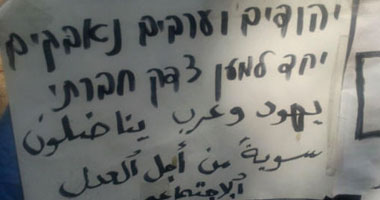 יהודים וערבים נאבקים
יחד למען צדק חברתי
يهود وعرب يناضلون
سويةً من أجل العدل
الاجتماعي